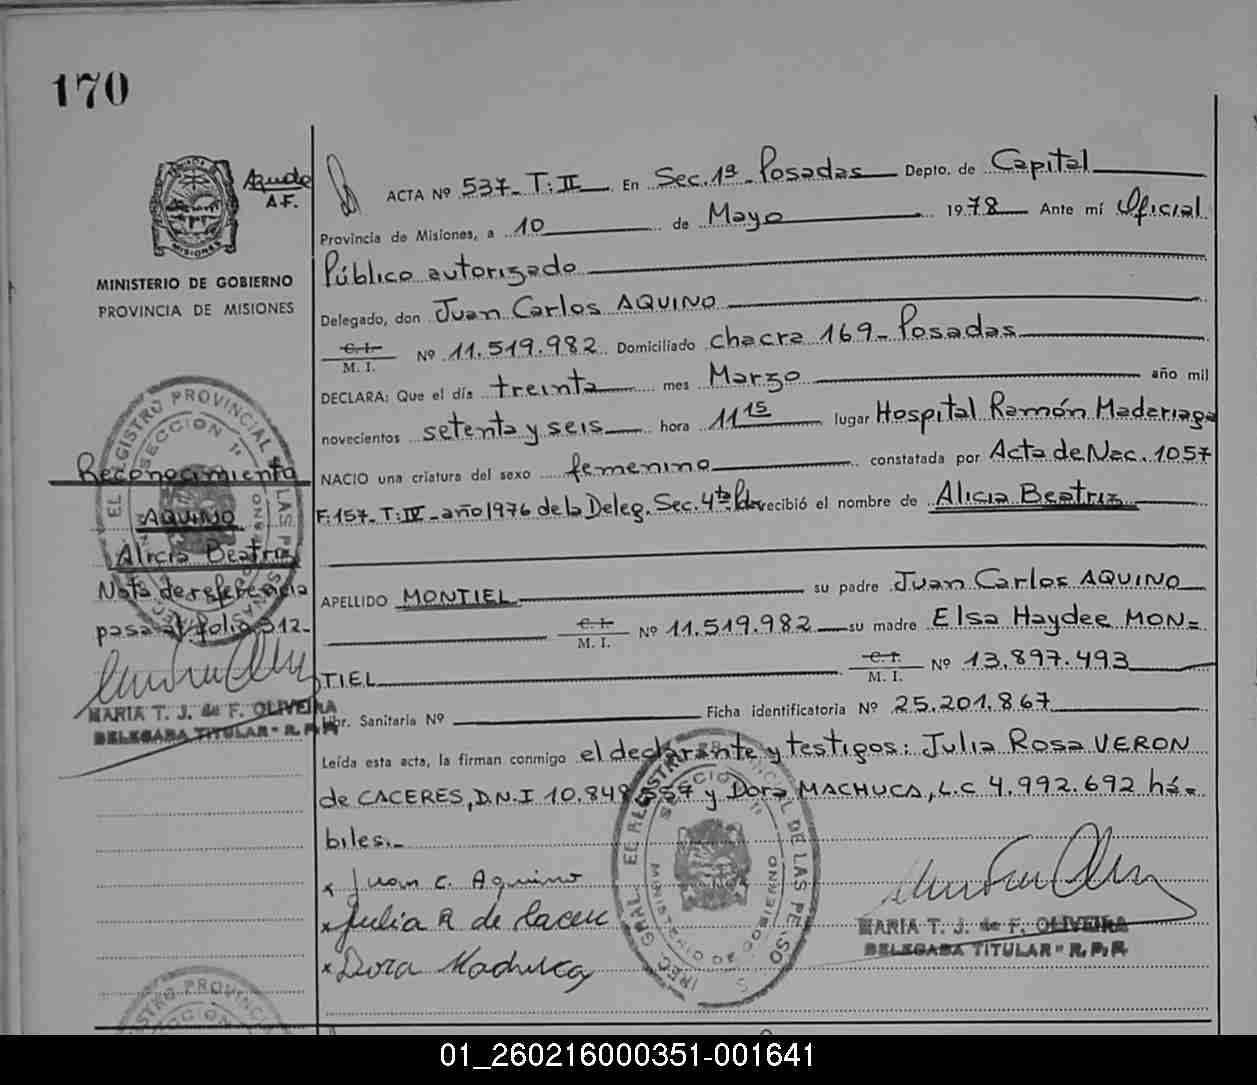 170
Agudo
A.F.
MINISTERIO DE GOBIERNO
PROVINCIA DE MISIONES
ACTA Nº 537- T: II En Sec. 1ª Posadas Depto. de Capital
Provincia de Misiones, a 10 de Mayo 1978 Ante mí Oficial
Público autorizado
Delegado, don Juan Carlos AQUINO
C.I.
M. I. Nº 11.519.982 Domiciliado chacra 169- Posadas
DECLARA: Que el día treinta mes Marzo año mil
novecientos setenta y seis hora 11 15 lugar Hospital Ramón Maderiaga
NACIO una criatura del sexo femenino constatada por Acta de Nac. 1057
F. 157- T: IV- año 1976 de la Deleg. Sec. 4ta recibió el nombre de Alicia Beatriz
APELLIDO MONTIEL su padre Juan Carlos AQUINO
C.I.
M. I. Nº 11.519.982 su madre Elsa Haydee MON=
TIEL C.I.
M. I. Nº 13.897.493
Libr. Sanitaria Nº Ficha identificatoria Nº 25.201.867
Leída esta acta, la firman conmigo el declarante y testigos: Julia Rosa VERON
de CACERES, D.N.I 10.848.557 y Dora MACHUCA, L.C 4.992.692 há=
biles.-
x Juan C. Aquino
x Julia R de Cacere
x Dora Machuca
MARIA T. J. de F. OLIVEIRA
DELEGADA TITULAR - R. P. P.
Reconocimiento
AQUINO
Alicia Beatriz
Nota de referencia
pasa al folio 312-
MARIA T. J. de F. OLIVEIRA
DELEGADA TITULAR - R. P. P.
REGISTRO PROVINCIAL DE LAS PERSONAS
SECCION 1ª
01_260216000351-001641